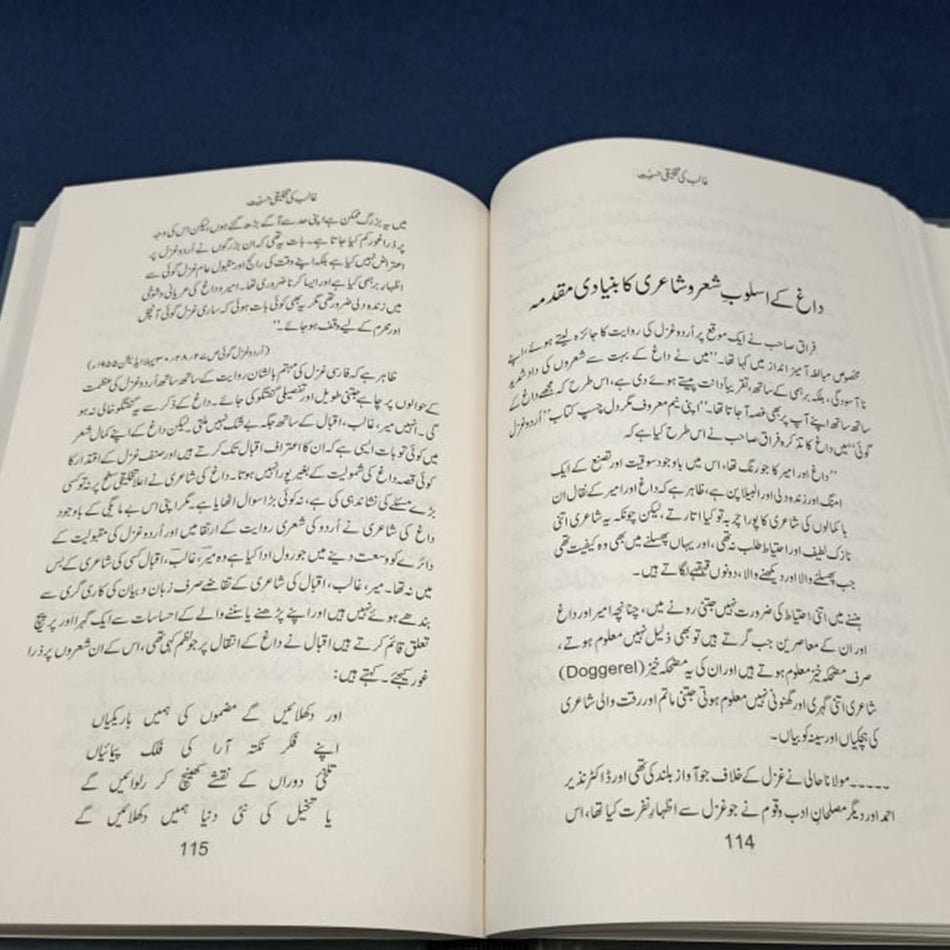 غالب کی تخلیقی حسیّت
داغ کے اسلوبِ شعر و شاعری کا بنیادی مقدمہ
فراق صاحب نے ایک موقع پر اُردو غزل کی روایت کا جائزہ لیتے ہوئے، اپنے
مخصوص مبالغہ آمیز انداز میں کہا تھا۔ ”میں نے داغ کے بہت سے شعروں کی داد شدید
نا آسودگی، بلکہ برہمی کے ساتھ، تقریباً دانت پیستے ہوئے دی ہے، اس طرح کہ مجھے داغ کے
ساتھ ساتھ اپنے آپ پر بھی غصہ آجاتا تھا۔“ اپنی نیم معروف مگر دل چسپ کتاب ”اُردو غزل
گوئی“ میں داغ کا تذکرہ فراق صاحب نے اس طرح کیا ہے کہ
”داغ اور امیر کا جو رنگ تھا، اس میں باوجود سوقیت اور تصنع کے ایک
امنگ اور زندہ دلی اور البیلا پن ہے، ظاہر ہے کہ داغ اور امیر کے نقال ان
باکمالوں کی شاعری کا پورا چربہ تو کیا اتارتے، لیکن چونکہ یہ شاعری اتنی
نازک لطیف اور احتیاط طلب نہ تھی، اور یہاں پھسلنے میں بھی وہ کیفیت تھی
جب پھسلنے والا اور دیکھنے والا، دونوں قہقہے لگاتے ہیں۔
ہنسنے میں اتنی احتیاط کی ضرورت نہیں جتنی رونے میں، چنانچہ امیر اور داغ
اور ان کے معاصرین جب گرتے ہیں تو بھی ذلیل نہیں معلوم ہوتے،
صرف مضحکہ خیز معلوم ہوتے ہیں اور ان کی یہ مضحکہ خیز (Doggerel)
شاعری اتنی گہری اور گھنونی نہیں معلوم ہوتی جتنی ماتم اور رقت والی شاعری
کی ہچکیاں اور سینہ کوبیاں۔
۔۔۔۔۔مولانا حالی نے غزل کے خلاف جو آواز بلند کی تھی اور ڈاکٹر نذیر
احمد اور دیگر مصلحانِ ادب و قوم نے جو غزل سے اظہارِ نفرت کیا تھا، اس
114
غالب کی تخلیقی حسیّت
میں یہ بزرگ ممکن ہے اپنی حد سے آگے بڑھ گئے ہوں، لیکن اس کی وجہ
پر ذرا غور کم کیا جاتا ہے۔ بات یہ تھی کہ ان بزرگوں نے اُردو غزل پر
اعتراض نہیں کیا ہے بلکہ اپنے وقت کی رائج اور مقبول عام غزل گوئی سے
اظہارِ برہمی کیا ہے اور ایسا کرنا ضروری تھا۔ امیر و داغ کی عریانی و شوخی
میں زندہ دلی ضرور تھی مگر یہ بھی کوئی بات ہوئی کہ ساری غزل گوئی آنچل
اور محرم کے لیے وقف ہو جائے۔“
(اُردو غزل گوئی ص ۴۷، ۴۸، ۳۰ پہلا ایڈیشن ۱۹۵۵ء)
ظاہر ہے کہ فارسی غزل کی مہتم بالشان روایت کے ساتھ ساتھ اُردو غزل کی عظمت
کے حوالوں پر چاہے جتنی طویل اور تفصیلی گفتگو کی جائے۔ داغ کے ذکر سے یہ گفتگو خالی نہ ہو
گی۔ انہیں میر، غالب، اقبال کے ساتھ جگہ بے شک نہیں ملتی۔ لیکن داغ کے اپنے کمالِ شعر
میں کوئی تو بات ایسی ہے کہ ان کا اعتراف اقبال تک کرتے ہیں اور صنفِ غزل کے اقتدار کا
کوئی قصہ داغ کی شمولیت کے بغیر پورا نہیں ہوتا۔ داغ کی شاعری نے اعلا تخلیقی سطح پر نہ تو کسی
بڑے مسئلے کی نشاندہی کی ہے، نہ کوئی بڑا سوال اٹھایا ہے۔ مگر اپنی اس بے مائگی کے باوجود
داغ کی شاعری نے اُردو کی شعری روایت کے ارتقا میں اور اُردو غزل کی مقبولیت کے
دائرے کو وسعت دینے میں جو رول ادا کیا ہے وہ میر، غالب، اقبال کسی کی شاعری کے بس
میں نہ تھا۔ میر، غالب، اقبال کی شاعری کے تقاضے صرف زبان و بیان کی کاری گری سے
بندھے ہوئے نہیں ہیں اور اپنے پڑھنے یا سننے والے کے احساسات سے ایک گہرا اور پر پیچ
تعلق قائم کرتے ہیں اقبال نے داغ کے انتقال پر جو نظم کہی تھی، اس کے ان شعروں پر ذرا
غور کیجئے۔ کہتے ہیں:
اور دکھلائیں گے مضموں کی ہمیں باریکیاں
اپنے فکرِ نکتہ آرا کی فلک پیمائیاں
تلخیِٔ دوراں کے نقشے کھینچ کر رلوائیں گے
یا تخیل کی نئی دنیا ہمیں دکھلائیں گے
115